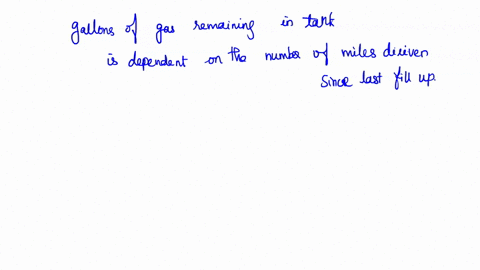 gallons of gas remaining in tank
is dependent on the number of miles driven
Since last fill up.